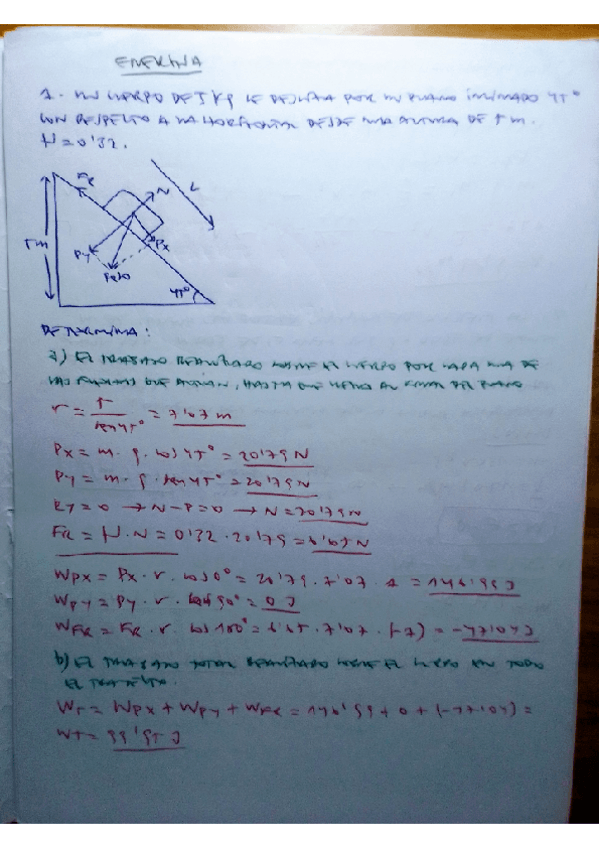 ENERGÍA
1.- UN CUERPO DE 3 Kg SE DESLIZA POR UN PLANO INCLINADO 45°
CON RESPECTO A LA HORIZONTAL DESDE UNA ALTURA DE 5 m.
μ = 0'32.
FR
N
L
5m
Py
Px
Peso
45°
DETERMINA:
a) EL TRABAJO REALIZADO SOBRE EL CUERPO POR CADA UNA DE
LAS FUERZAS QUE ACTÚAN, HASTA QUE LLEGA AL FINAL DEL PLANO
r = 5 / sen 45° = 7'07 m
Px = m · g · cos 45° = 20'79 N
Py = m · g · sen 45° = 20'79 N
Ry = 0 → N - P = 0 → N = 20'79 N
FR = μ · N = 0'32 · 20'79 = 6'65 N
WPx = Px · r · cos 0° = 20'79 · 7'07 · 1 = 146'99 J
WPy = Py · r · cos 90° = 0 J
WFR = FR · r · cos 180° = 6'65 · 7'07 · (-1) = -47'04 J
b) EL TRABAJO TOTAL REALIZADO SOBRE EL CUERPO EN TODO
EL TRAYECTO.
WT = WPx + WPy + WFR = 146'99 + 0 + (-47'04) =
WT = 99'95 J